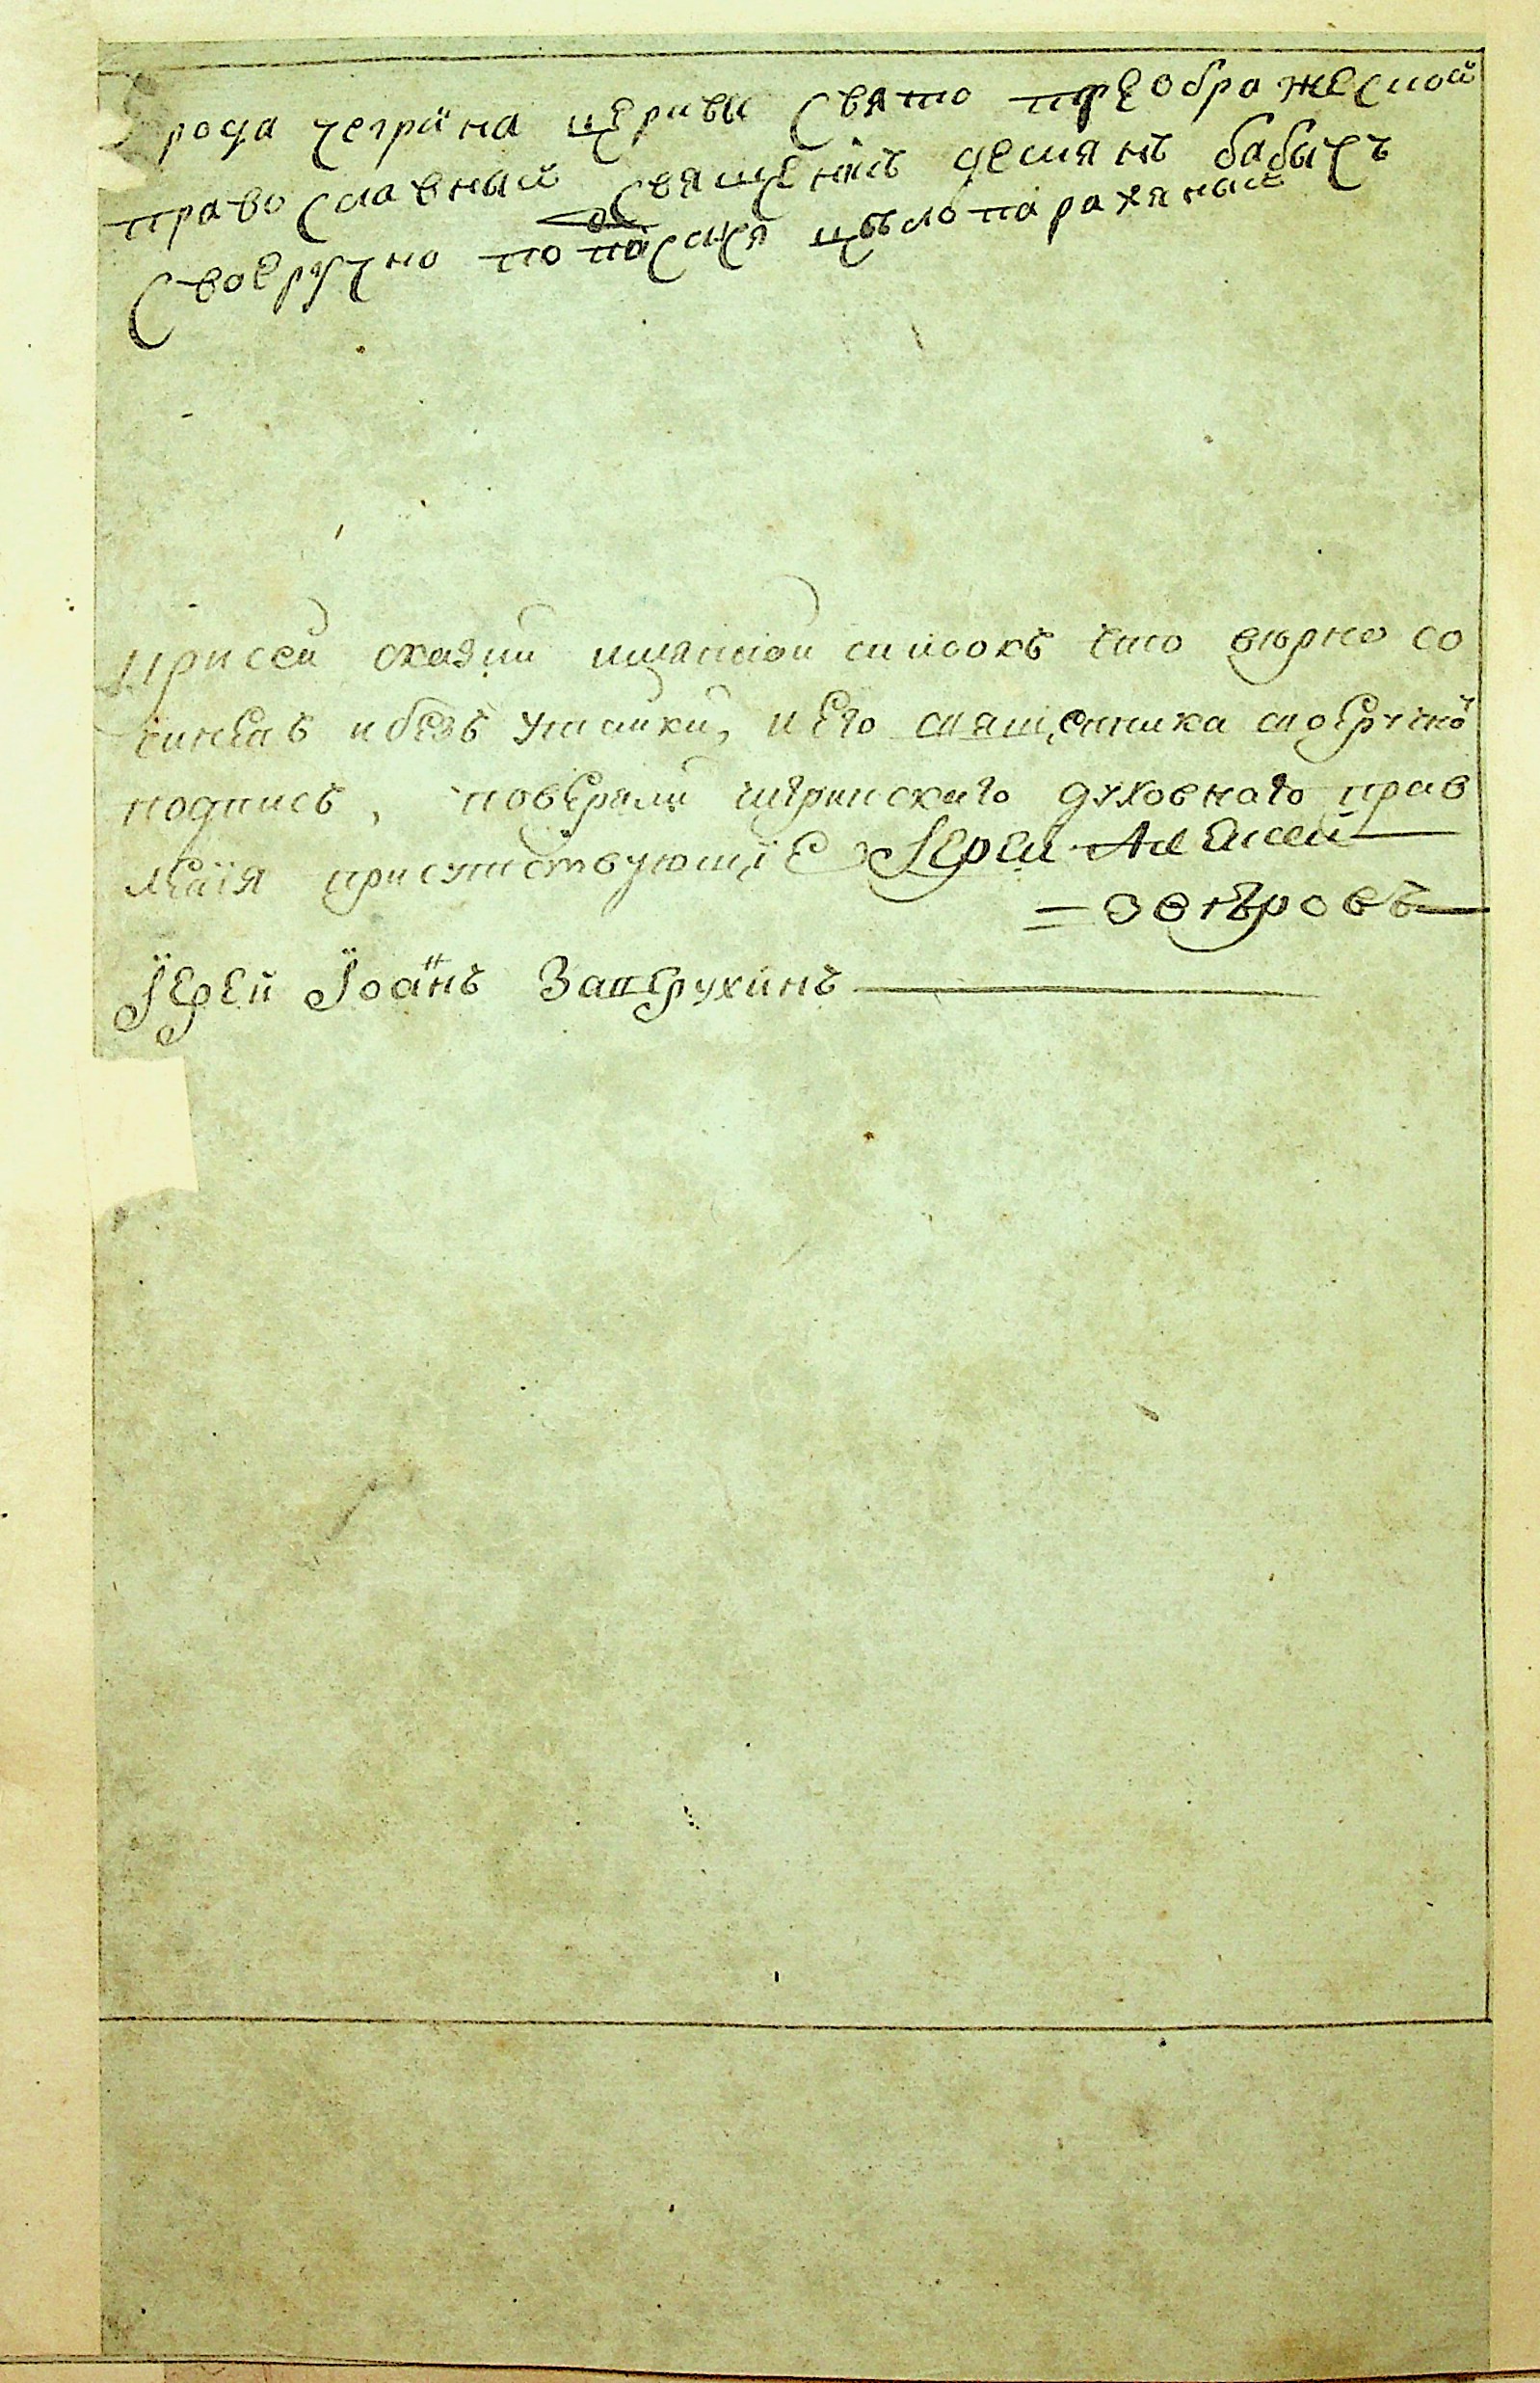 рода чегрина церквы Свято преображеской
православный Свящеикъ демянъ бабычъ
Своеручно пописуся цѣлопарахяные
При сей сказки имянной списокъ что вѣрно со
чиненъ и безъ утайки, и Его священника своеручно
подпись, повѣряли чигринскаго духовнаго прав
лѣнія присутствующіе Іерей Алексей
Іерей Іоаннъ Запѣрухинъ